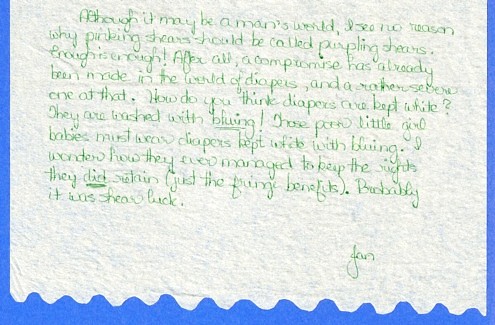 Although it may be a man's world, I see no reason
why pinking shears should be called purpling shears.
Enough is enough! After all, a compromise has already
been made in the world of diapers, and a rather severe
one at that. How do you think diapers are kept white?
They are washed with bluing! Those poor little girl
babies must wear diapers kept white with bluing. I
wonder how they ever managed to keep the rights
they did retain (just the fringe benefits). Probably
it was shear luck.
Jan